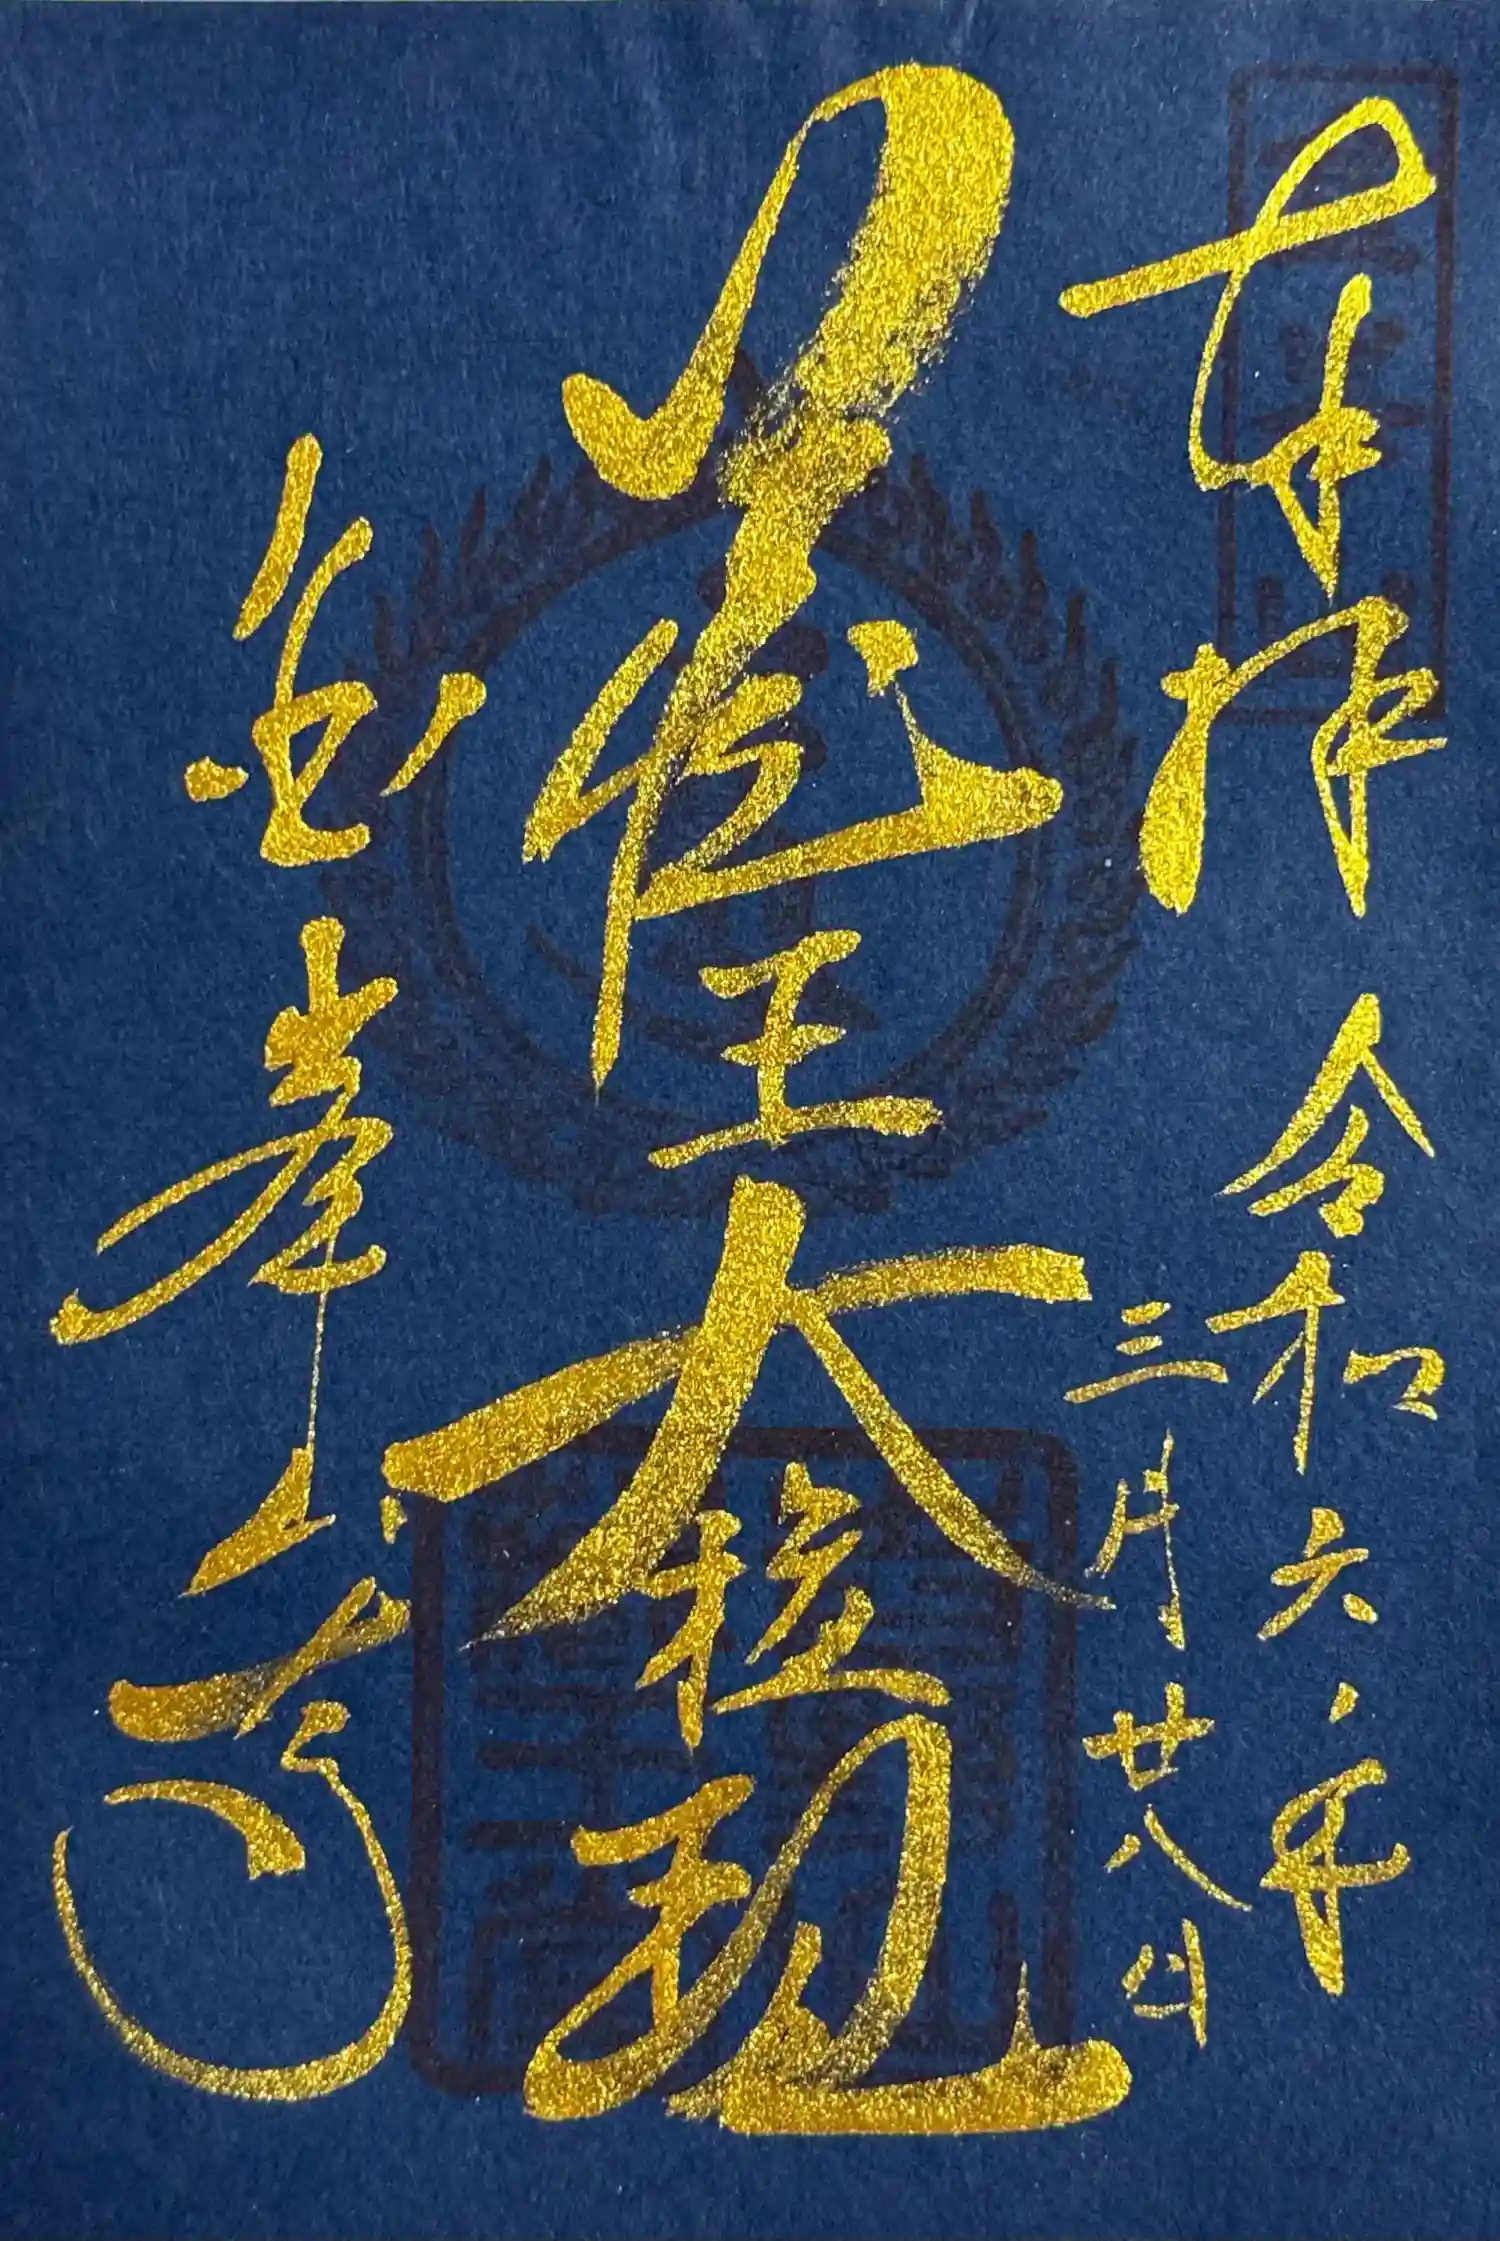 奉拝 令和六年
三月廿八日
蔵王大権現
金峯山寺